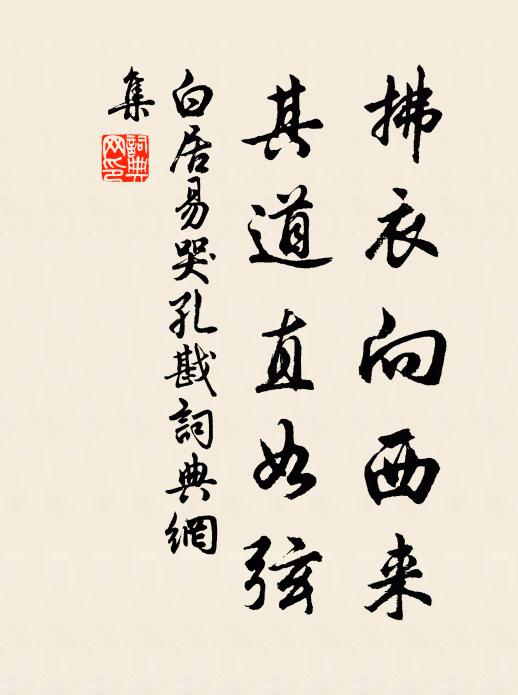 拂衣向西来
其道直如弦
白居易哭孔戡詞典網
集
詞典网印